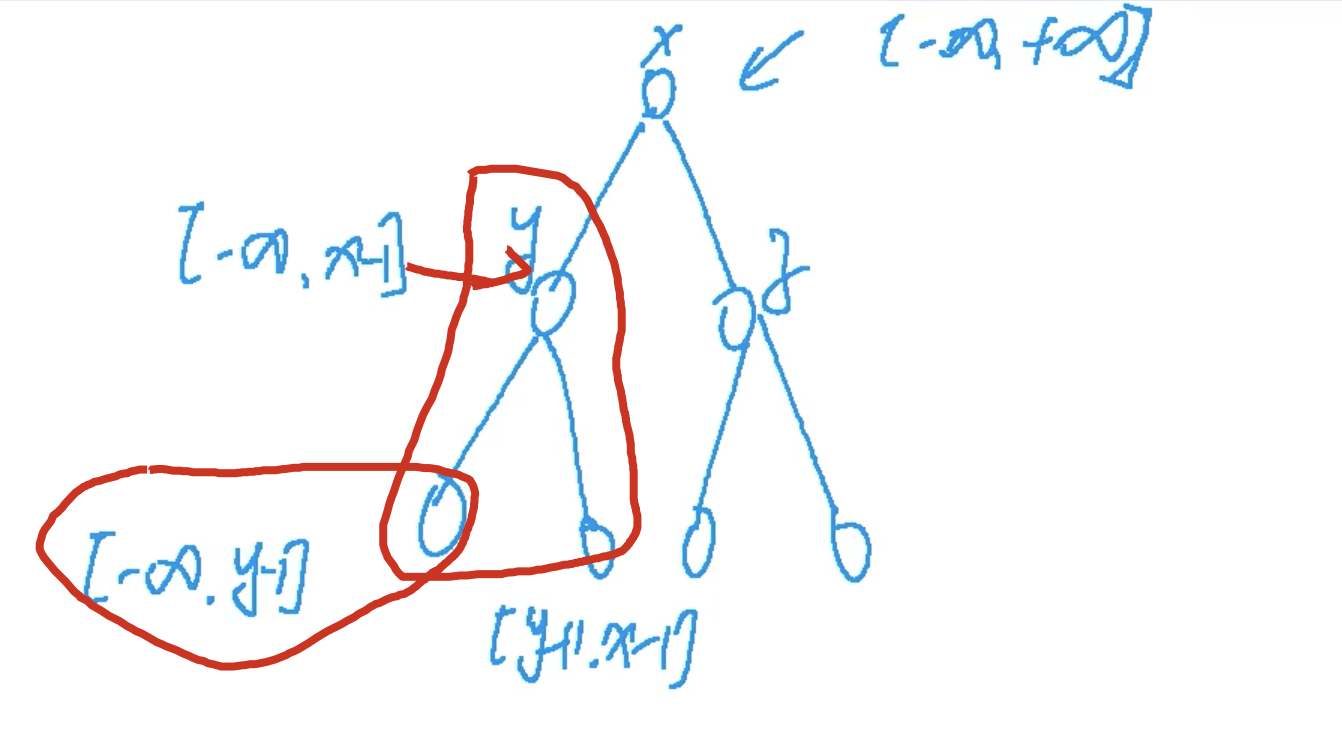 x
[-∞, +∞]
y
[-∞, x-1]
z
[-∞, y-1]
[y+1, x-1]